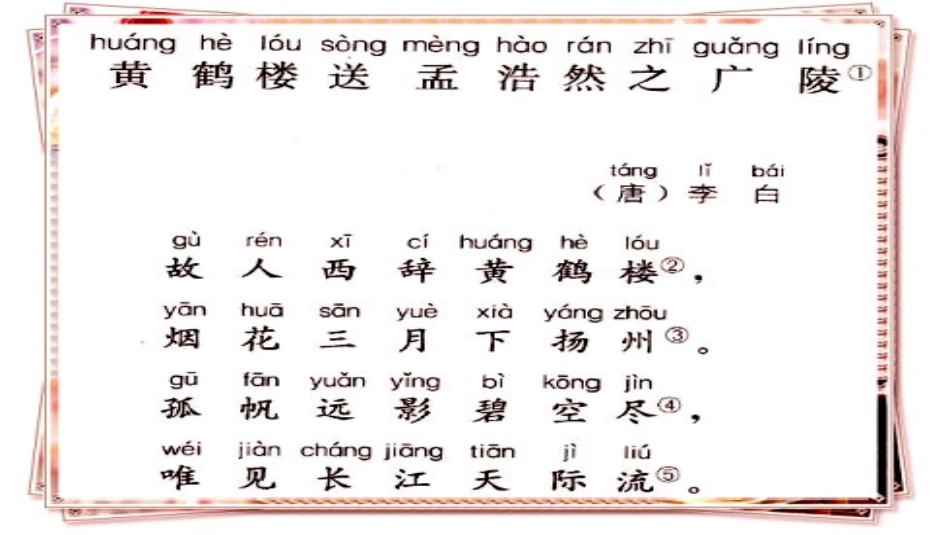 huáng hè lóu sòng mèng hào rán zhī guǎng líng
黄鹤楼送孟浩然之广陵①
táng lǐ bái
（唐）李白
gù rén xī cí huáng hè lóu
故人西辞黄鹤楼②，
yān huā sān yuè xià yáng zhōu
烟花三月下扬州③。
gū fān yuǎn yǐng bì kōng jìn
孤帆远影碧空尽④，
wéi jiàn cháng jiāng tiān jì liú
唯见长江天际流⑤。